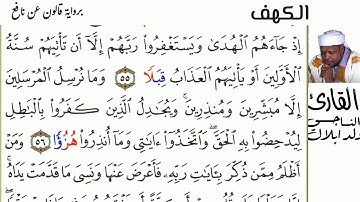 الكهف
برواية قالون عن نافع
إِذْ جَآءَهُمُ الْهُدَىٰ وَيَسْتَغْفِرُوا۟ رَبَّهُمْ إِلَّآ أَن تَأْتِيَهُمْ سُنَّةُ
الْأَوَّلِينَ أَوْ يَأْتِيَهُمُ الْعَذَابُ قِبَلًا ٥٥ وَمَا نُرْسِلُ الْمُرْسَلِينَ
إِلَّا مُبَشِّرِينَ وَمُنذِرِينَ وَيُجَٰدِلُ الَّذِينَ كَفَرُوا۟ بِالْبَٰطِلِ
لِيُدْحِضُوا۟ بِهِ الْحَقَّ وَاتَّخَذُوٓا۟ ءَايَٰتِي وَمَآ أُنذِرُوا۟ هُزُؤًا ٥٦ وَمَنْ
أَظْلَمُ مِمَّن ذُكِّرَ بِـَٔايَٰتِ رَبِّهِ فَأَعْرَضَ عَنْهَا وَنَسِيَ مَا قَدَّمَتْ يَدَاهُ
القارئ
الناجي
ولد ابلال